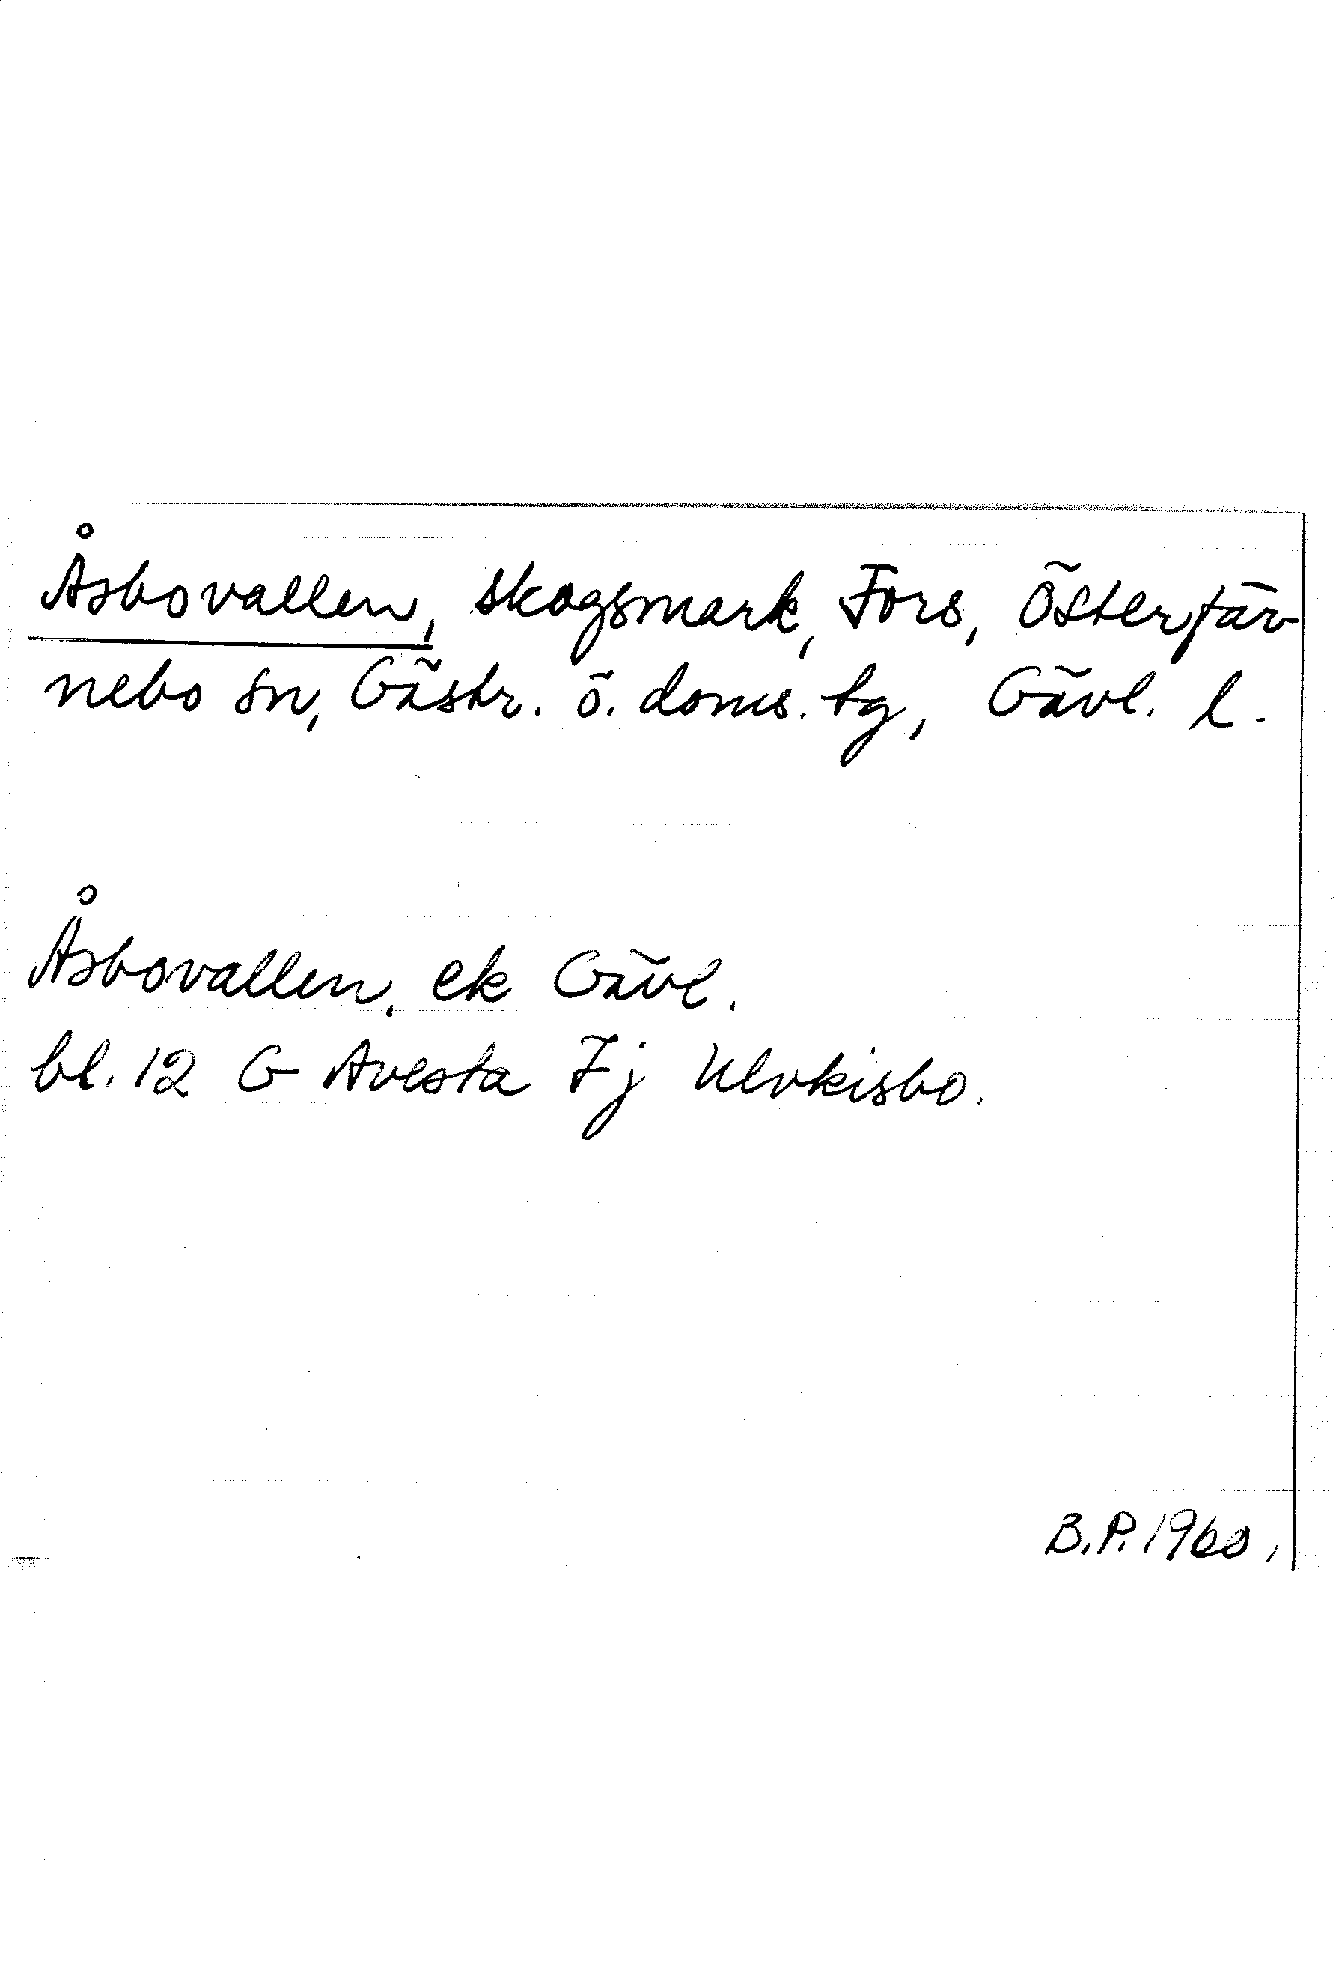 Åsbovallen, skogsmark, Fors, Österfär-
nebo sn, Gästr. ö. doms. tg, Gävl. l.
Åsbovallen, ek Gävl.
bl. 12 G Avesta 7j Ulvkisbo.
B.P. 1960.